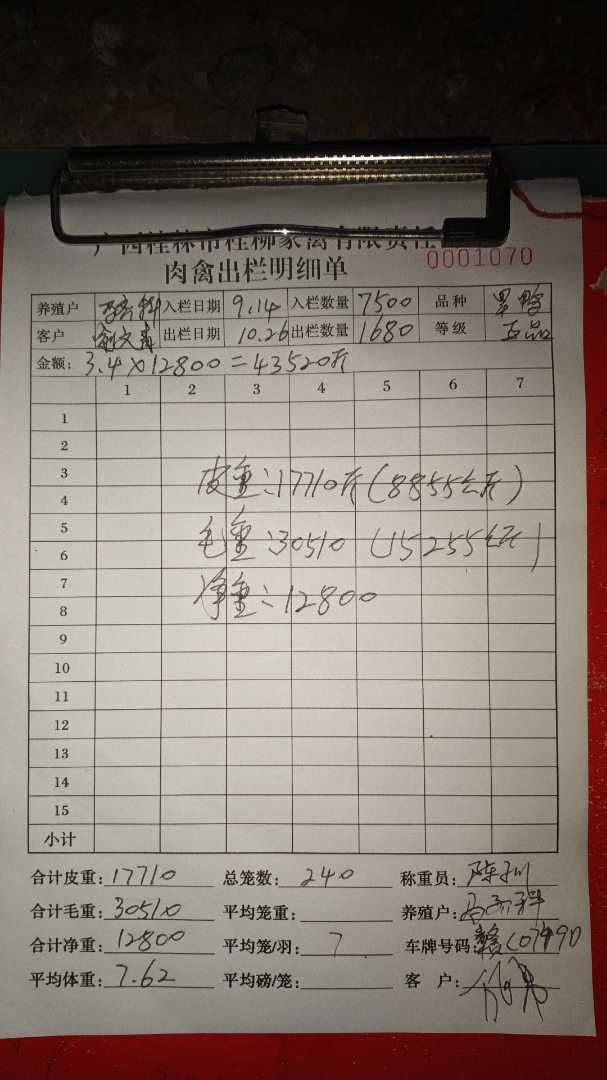 广西桂林市桂柳家禽有限责任
0001070
肉禽出栏明细单
养殖户 入栏日期 9.14 入栏数量 7500 品种 黑鸭
客户 出栏日期 10.26 出栏数量 1680 等级 正品
金额: 3.4×12800=43520斤
1 2 3 4 5 6 7
1
2
3
皮重:17710斤(8855公斤)
4
5
毛重:30510 (15255公斤)
6
7
净重:12800
8
9
10
11
12
13
14
15
小计
合计皮重: 17710 总笼数: 240 称重员:
合计毛重: 30510 平均笼重: 养殖户:
合计净重: 12800 平均笼/羽: 7 车牌号码:
平均体重: 7.62 平均磅/笼: 客 户: